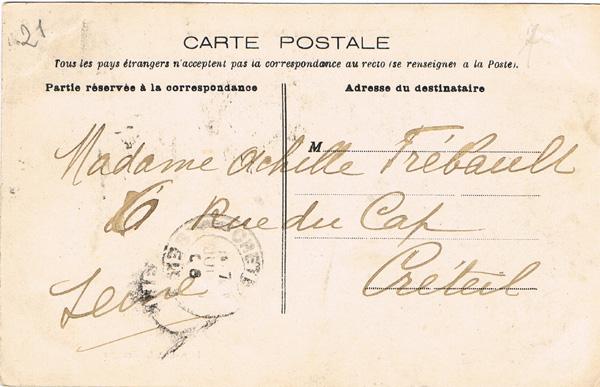 21
7
CARTE POSTALE
Tous les pays étrangers n'acceptent pas la correspondance au recto (se renseigner a la Poste).
Partie réservée à la correspondance
Adresse du destinataire
M
Madame Achille Frébault
6 Rue du Cap
Créteil
Seine